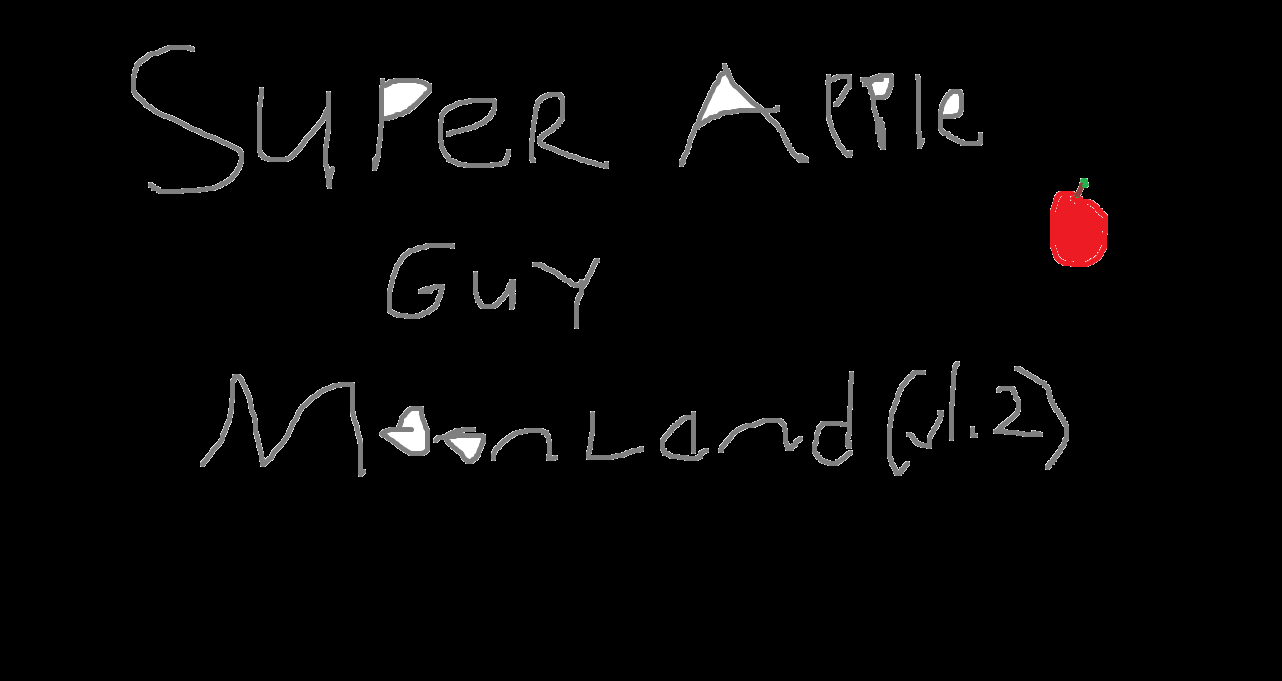 Super Apple
Guy
MoonLand (v1.2)